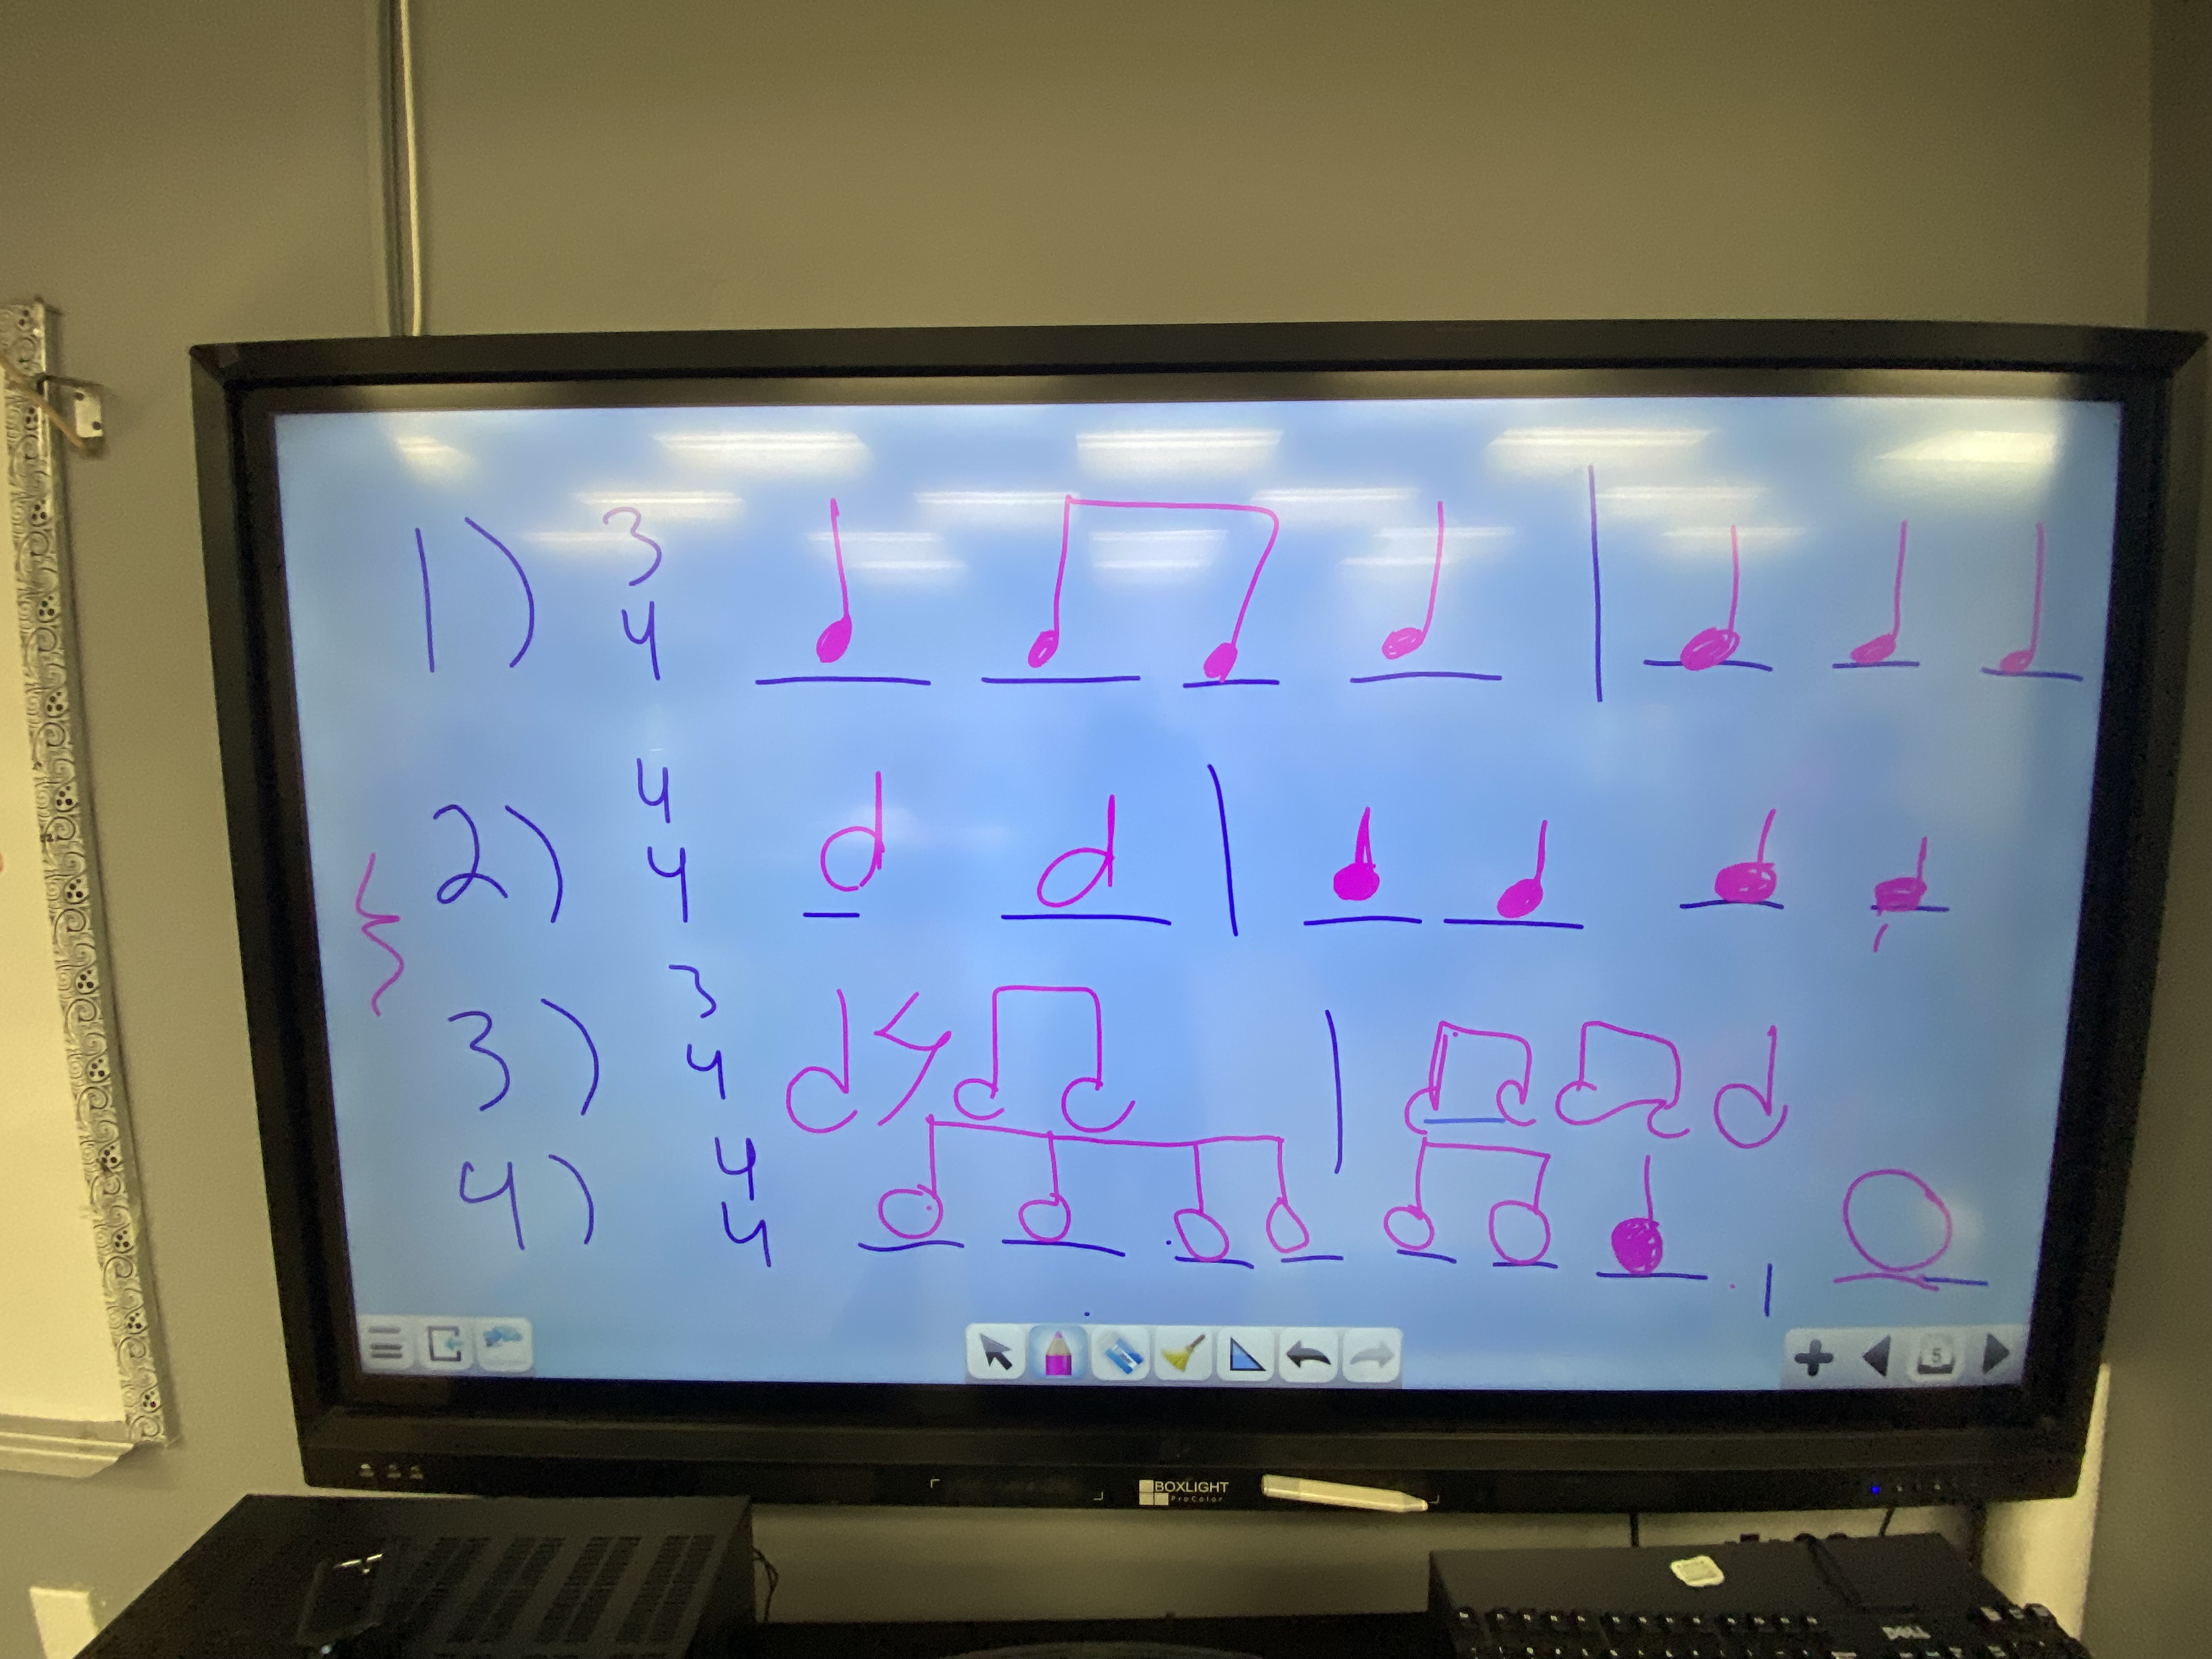 1) 3
4
2) 4
4
3) 3
4
4) 4
4
5
BOXLIGHT
ProColor
DELL